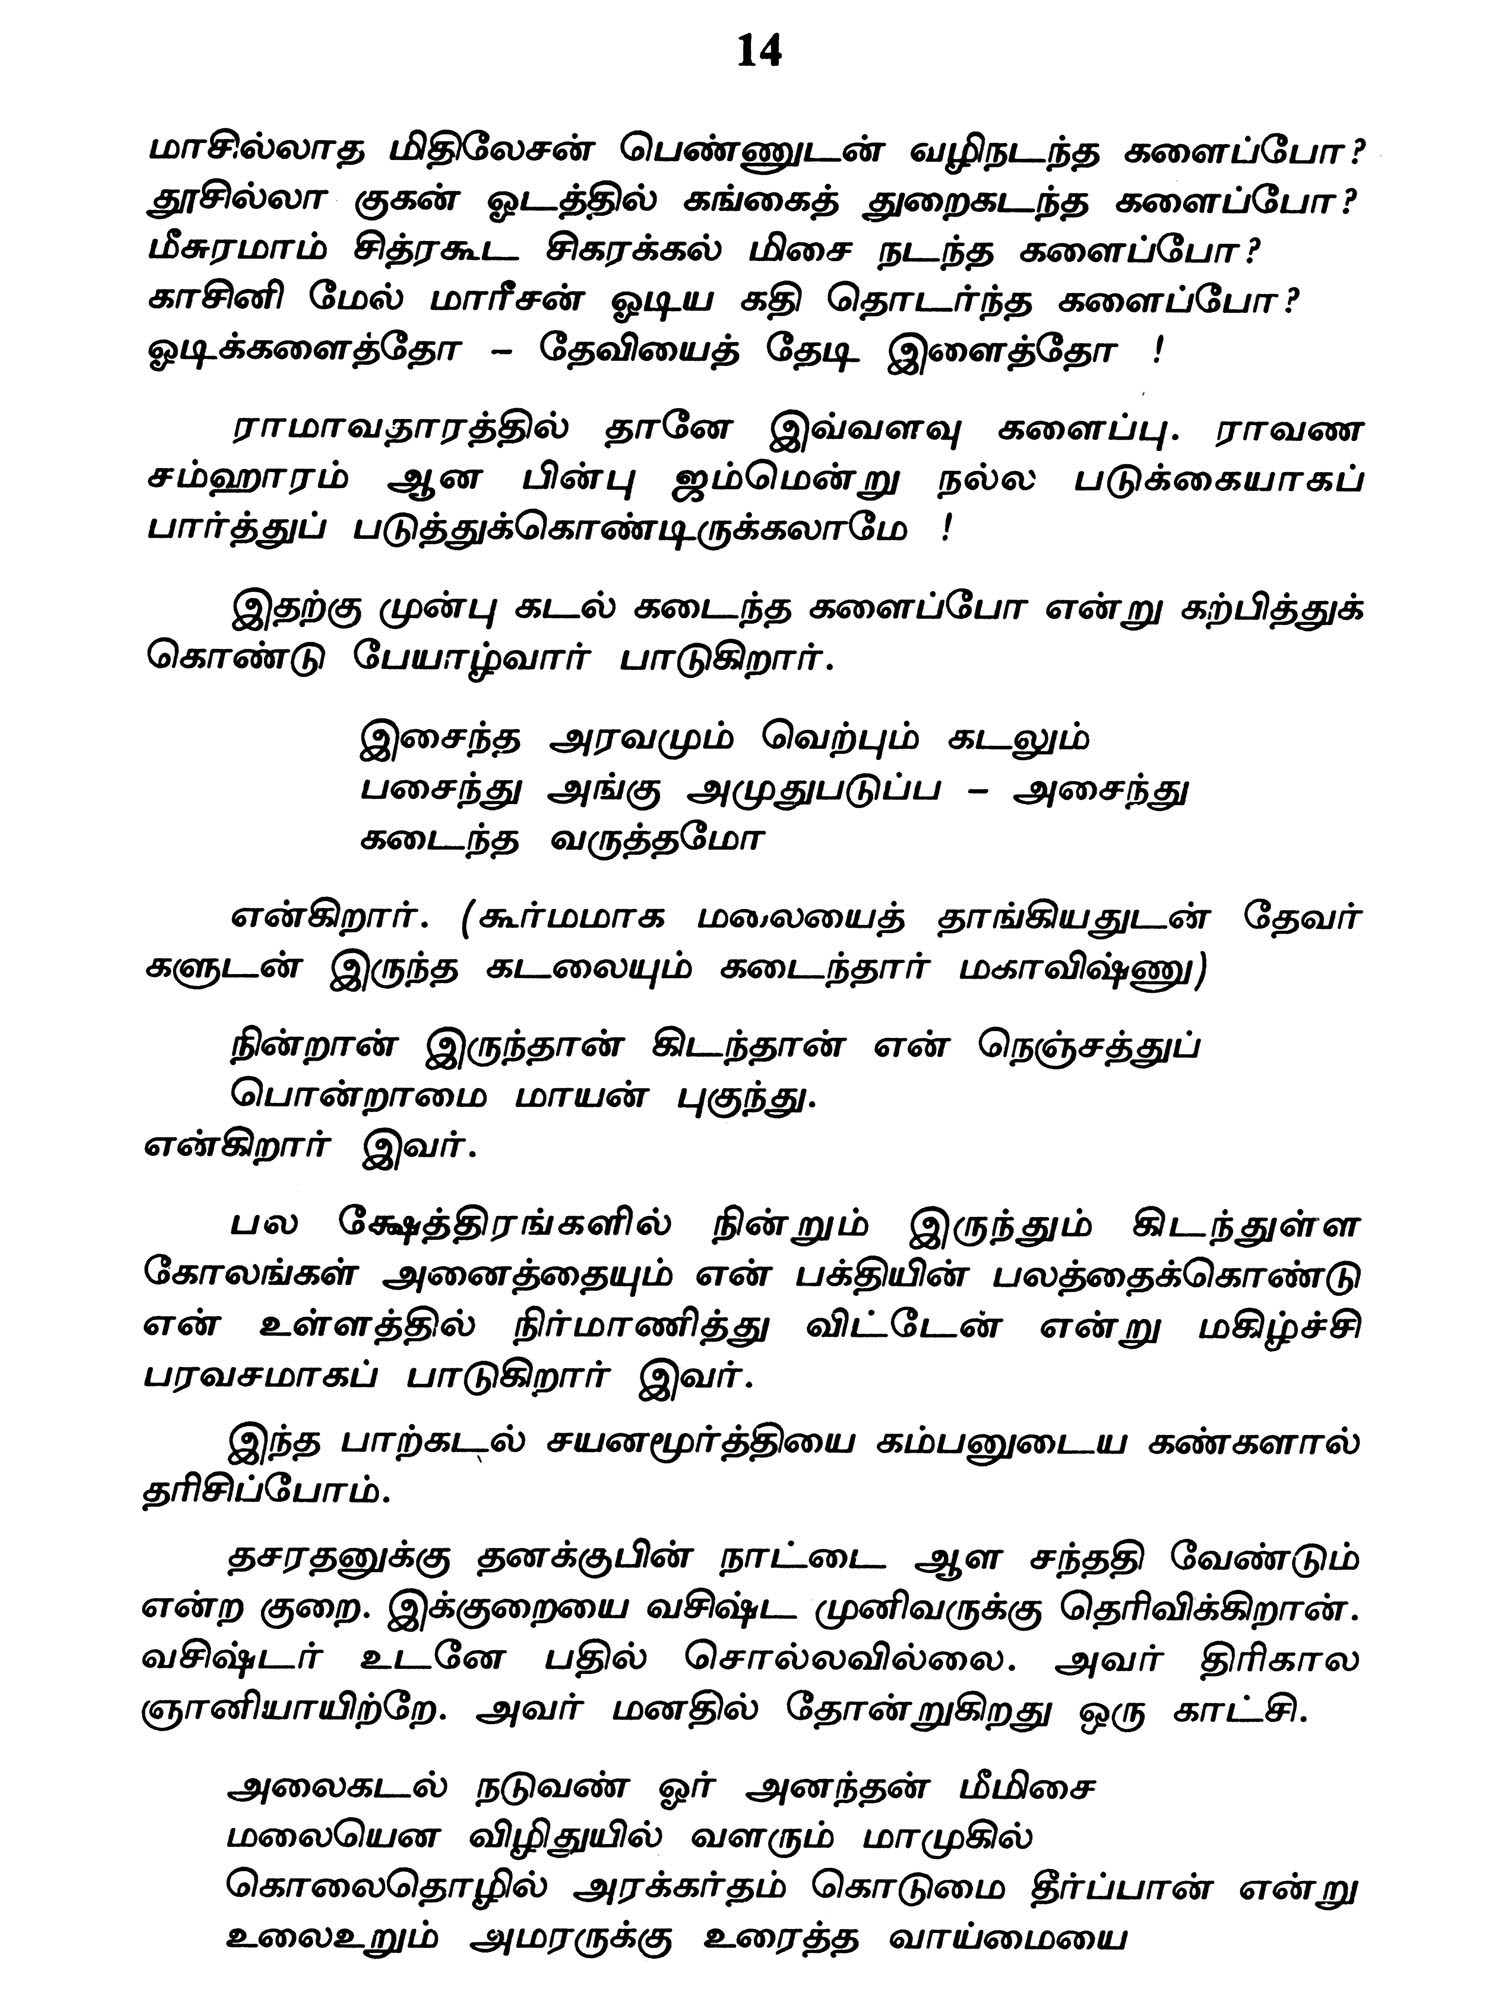 14
மாசில்லாத மிதிலேசன் பெண்ணுடன் வழிநடந்த களைப்போ?
தூசில்லா குகன் ஓடத்தில் கங்கைத் துறைகடந்த களைப்போ?
மீசுரமாம் சித்ரகூட சிகரக்கல் மிசை நடந்த களைப்போ?
காசினி மேல் மாரீசன் ஓடிய கதி தொடர்ந்த களைப்போ?
ஓடிக்களைத்தோ – தேவியைத் தேடி இளைத்தோ !
ராமாவதாரத்தில் தானே இவ்வளவு களைப்பு. ராவண
சம்ஹாரம் ஆன பின்பு ஜம்மென்று நல்ல படுக்கையாகப்
பார்த்துப் படுத்துக்கொண்டிருக்கலாமே !
இதற்கு முன்பு கடல் கடைந்த களைப்போ என்று கற்பித்துக்
கொண்டு பேயாழ்வார் பாடுகிறார்.
இசைந்த அரவமும் வெற்பும் கடலும்
பசைந்து அங்கு அமுதுபடுப்ப – அசைந்து
கடைந்த வருத்தமோ
என்கிறார். (கூர்மமாக மலையைத் தாங்கியதுடன் தேவர்
களுடன் இருந்த கடலையும் கடைந்தார் மகாவிஷ்ணு)
நின்றான் இருந்தான் கிடந்தான் என் நெஞ்சத்துப்
பொன்றாமை மாயன் புகுந்து.
என்கிறார் இவர்.
பல க்ஷேத்திரங்களில் நின்றும் இருந்தும் கிடந்துள்ள
கோலங்கள் அனைத்தையும் என் பக்தியின் பலத்தைக்கொண்டு
என் உள்ளத்தில் நிர்மாணித்து விட்டேன் என்று மகிழ்ச்சி
பரவசமாகப் பாடுகிறார் இவர்.
இந்த பாற்கடல் சயனமூர்த்தியை கம்பனுடைய கண்களால்
தரிசிப்போம்.
தசரதனுக்கு தனக்குபின் நாட்டை ஆள சந்ததி வேண்டும்
என்ற குறை. இக்குறையை வசிஷ்ட முனிவருக்கு தெரிவிக்கிறான்.
வசிஷ்டர் உடனே பதில் சொல்லவில்லை. அவர் திரிகால
ஞானியாயிற்றே. அவர் மனதில் தோன்றுகிறது ஒரு காட்சி.
அலைகடல் நடுவண் ஓர் அனந்தன் மீமிசை
மலையென விழிதுயில் வளரும் மாமுகில்
கொலைதொழில் அரக்கர்தம் கொடுமை தீர்ப்பான் என்று
உலைஉறும் அமரருக்கு உரைத்த வாய்மையை